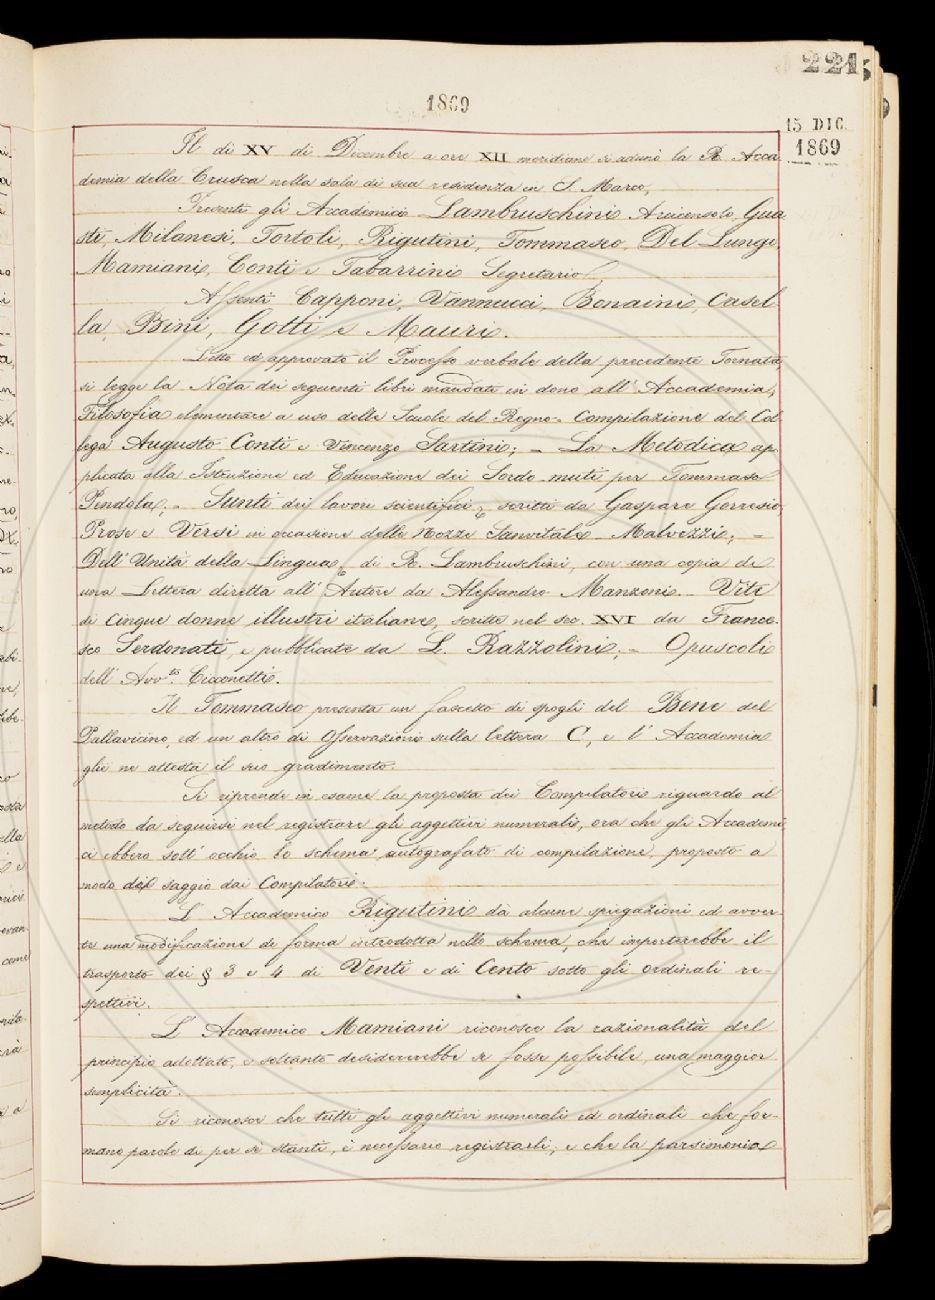 221
1869
15 DIC.
1869
Il dì XV di Decembre a ore XII meridiane si adunò la R. Acca
demia della Crusca nella sala di sua residenza in S. Marco,
Presenti gli Accademici Lambruschini Arciconsolo, Gua
sti, Milanesi, Tortoli, Rigutini, Tommaseo, Del Lungo
Mamiani, Conti e Tabarrini Segretario
Assenti Capponi, Vannucci, Bonaini, Casel
la, Bini, Gotti e Mauri.
Letto ed approvato il Processo verbale della precedente Tornata,
si legge la Nota dei seguenti libri mandati in dono all'Accademia,
Filosofia elementare a uso delle Scuole del Regno - Compilazione del Col
lega Augusto Conti e Vincenzo Sartini; - La Metodica ap
plicata alla Istruzione ed Educazione dei Sordo-muti per Tommaso
Pendola; - Sunti dei lavori scientifici, scritti da Gaspare Gorresio
Prose e Versi in occasione delle Nozze Sanvitale Malvezzi; -
Dell'Unità della Lingua, di R. Lambruschini, con una copia di
una Lettera diretta all'Autore da Alessandro Manzoni - Vite
di cinque donne illustri italiane, scritte nel sec. XVI da France-
sco Serdonati, e pubblicate da L. Razzolini; - Opuscoli
dell'Avv.to Cicconetti.
Il Tommaseo presenta un fascetto di spogli del Bene del
Pallavicino, ed un altro di Osservazioni sulla lettera C, e l'Accademia
gliene attesta il suo gradimento.
Si riprende in esame la proposta dei Compilatori riguardo al
metodo da seguirsi nel registrare gli aggettivi numerali, ora che gli Accademi
ci ebbero sott'occhio lo schema autografato di compilazione, proposto a
modo di saggio dai Compilatori.
L'Accademico Rigutini dà alcune spiegazioni ed avver-
te una modificazione di forma introdotta nello schema, che importerebbe il
trasporto dei § 3 e 4 di Venti e di Cento sotto gli ordinali re-
spettivi.
L'Accademico Mamiani riconosce la razionalità del
principio adottato, e soltanto desidererebbe se fosse possibile, una maggior
semplicità.
Si riconosce che tutti gli aggettivi numerali ed ordinali che for-
mano parole di per sè stanti, è necessario registrarli, e che la parsimonia